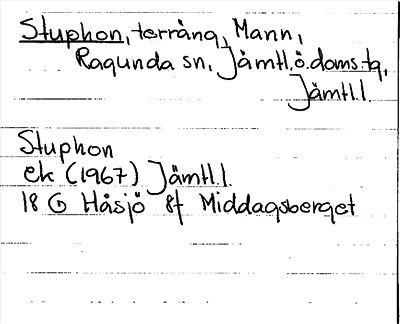 Stuphon, terräng, Mann,
Ragunda sn, Jämtl.ö.doms.tg,
Jämtl.l.
Stuphon
ek (1967) Jämtl.l.
18 G Håsjö 8f Middagsberget